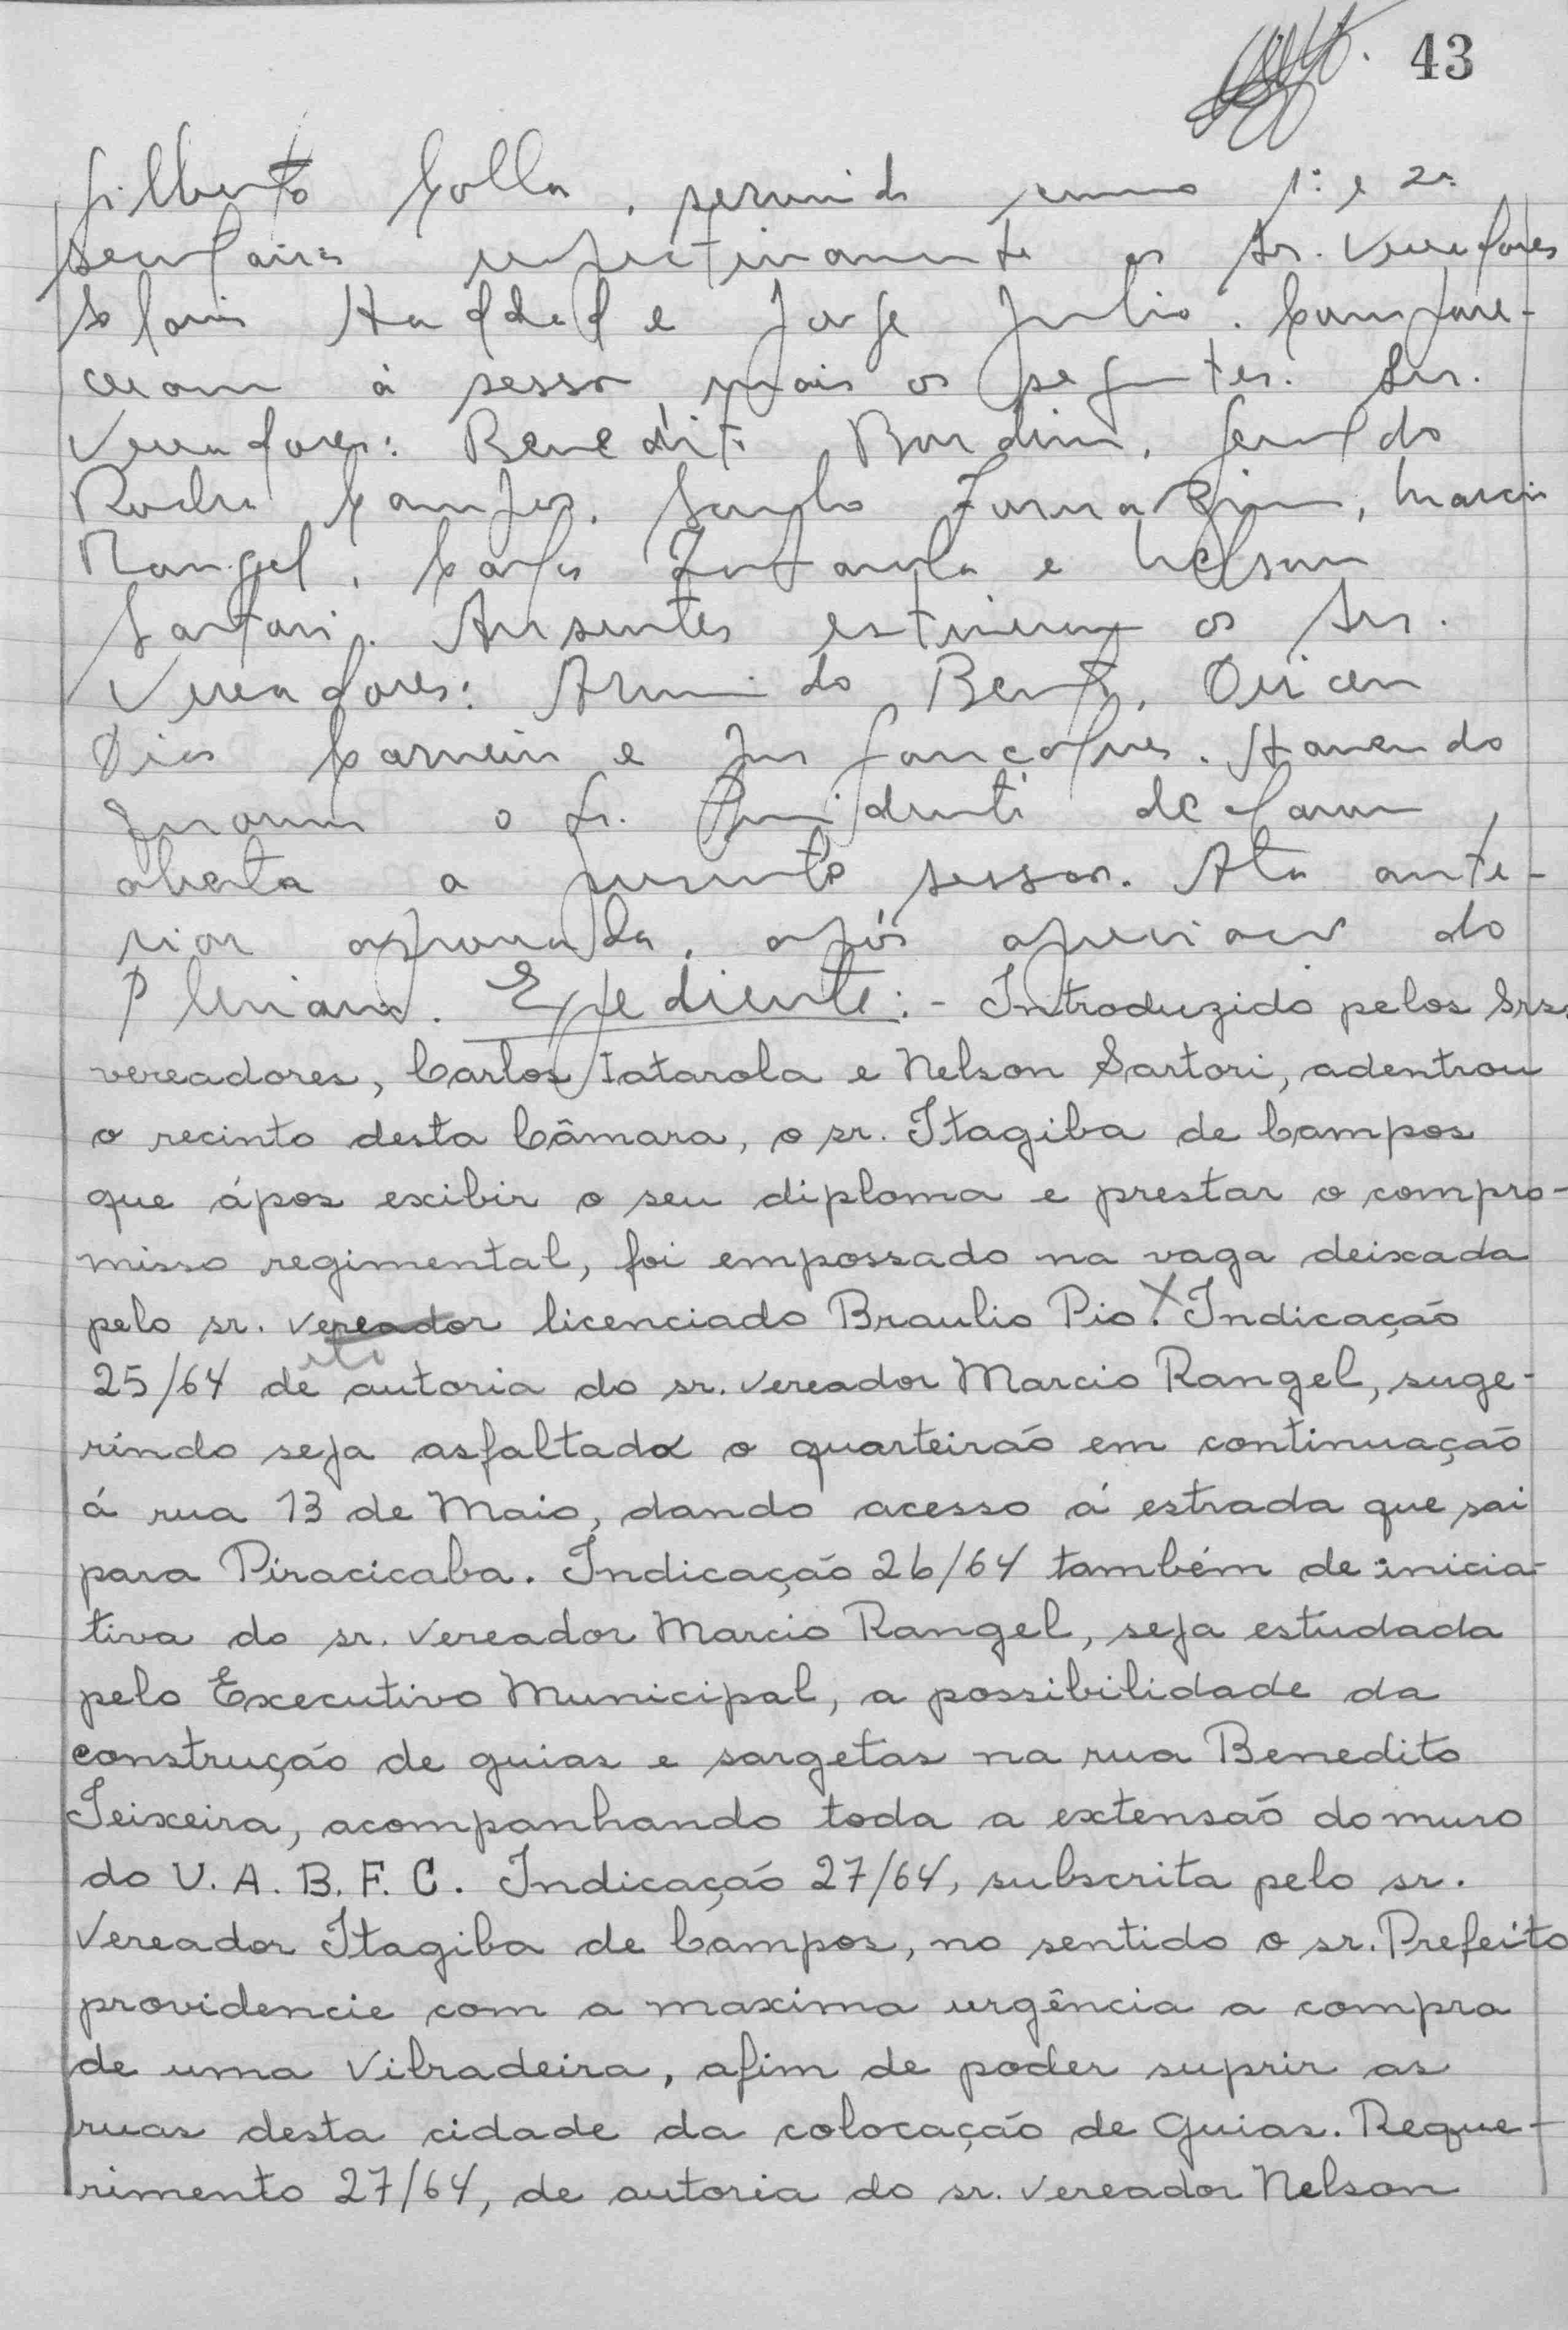 43
Gilberto Colla, servindo como 1º e 2º
secretarios respectivamente os Srs. Vereadores
Haddad e Jorge Julio. Compare-
ceram á sessão mais os seguintes Srs.
Vereadores: Benedito Bordini, Geraldo
Rocha Campos, Marcio
Rangel, Carlos Tatarola e Nelson
Sartori. Ausentes estiveram os Srs.
Vereadores: Armindo Bento,
Dias Carneiro e Gonçalves. Havendo
o Sr. Presidente declarou
aberta a presente sessão. Ata ante-
rior aprovada, após apreciação do
Plenario. Expediente: - Introduzido pelos Srs.
vereadores, Carlos Tatarola e Nelson Sartori, adentrou
o recinto desta Câmara, o sr. Itagiba de Campos
que ápos exibir o seu diploma e prestar o compro-
misso regimental, foi empossado na vaga deixada
pelo sr. vereador licenciado Braulio Pio. Indicação
25/64 de autoria do sr. vereador Marcio Rangel, suge-
rindo seja asfaltado o quarteirão em continuação
á rua 13 de Maio, dando acesso á estrada que sai
para Piracicaba. Indicação 26/64 também de inicia-
tiva do sr. vereador Marcio Rangel, seja estudada
pelo Executivo Municipal, a possibilidade da
construção de guias e sargetas na rua Benedito
Teixeira, acompanhando toda a extensão do muro
do U. A. B. F. C. Indicação 27/64, subscrita pelo sr.
Vereador Itagiba de Campos, no sentido o sr. Prefeito
providencie com a maxima urgência a compra
de uma Vibradeira, afim de poder suprir as
ruas desta cidade da colocação de Guias. Reque-
rimento 27/64, de autoria do sr. vereador Nelson